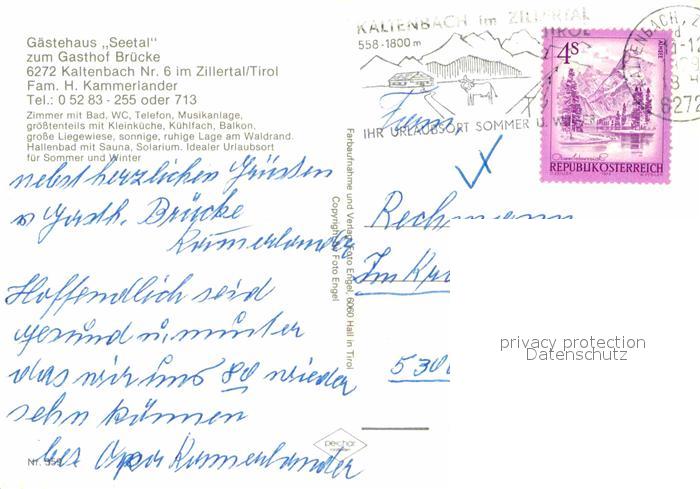 Gästehaus „Seetal"
zum Gasthof Brücke
6272 Kaltenbach Nr. 6 im Zillertal/Tirol
Fam. H. Kammerlander
Tel.: 0 52 83 - 255 oder 713
Zimmer mit Bad, WC, Telefon, Musikanlage,
größtenteils mit Kleinküche, Kühlfach, Balkon,
große Liegewiese, sonnige, ruhige Lage am Waldrand.
Hallenbad mit Sauna, Solarium. Idealer Urlaubsort
für Sommer und Winter
nebst herzlichen Grüssen
v Gasth. Brücke
Kammerlander
Hoffendlich seid
gesund u. munter
das wir uns 80 wieder
sehn können
Opa Kammerlander
Nr.
Farbaufnahme und Verlag Foto Engel, 6060 Hall in Tirol
Copyright by Foto Engel
pechar
KALTENBACH im ZILLERTAL
TIROL
558-1800m
IHR URLAUBSORT SOMMER U.
KALTENBACH, Z
6272
4S
REPUBLIK ÖSTERREICH
Fam.
Im
530
privacy protection
Datenschutz